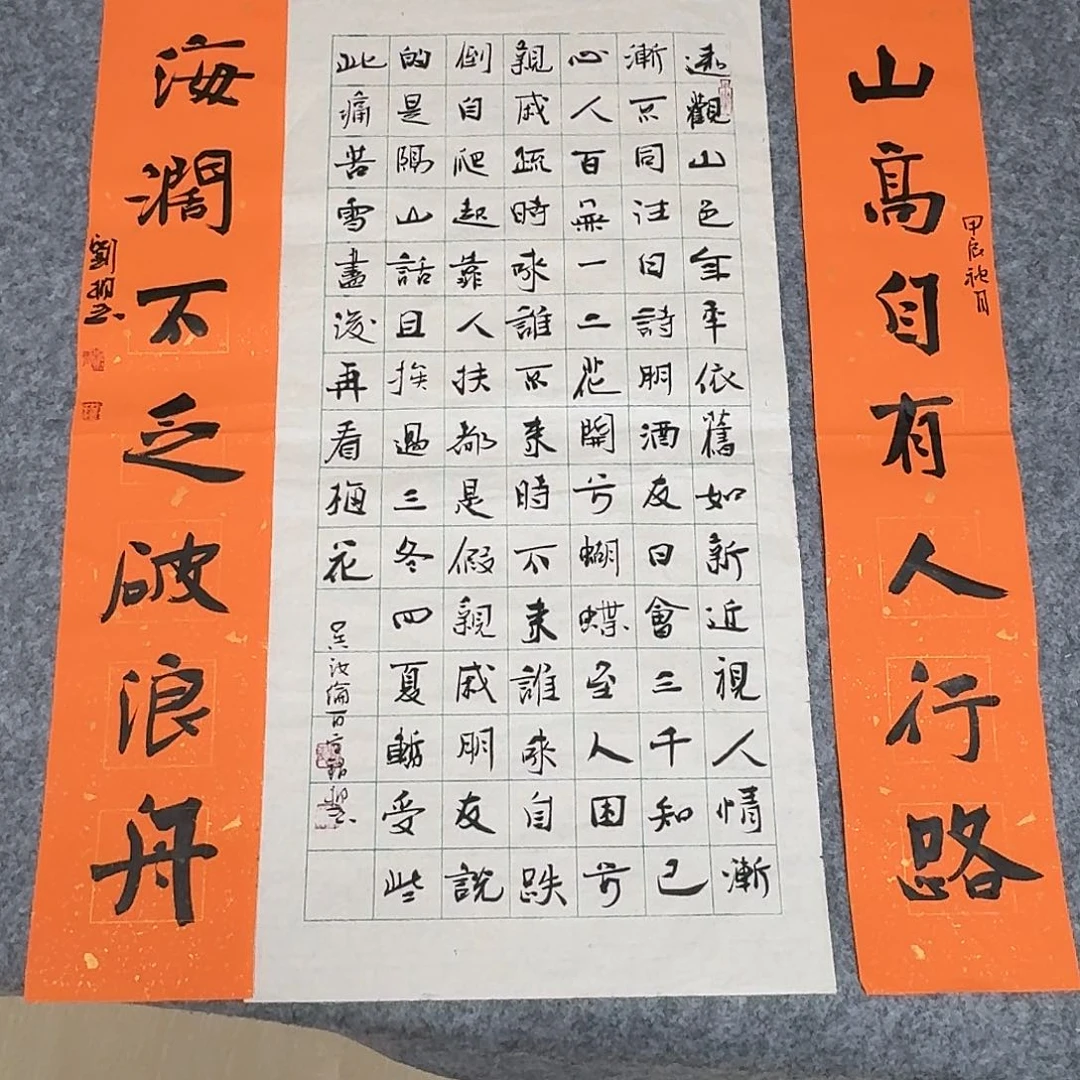 山高自有人行路
甲辰秋月
遠觀山色年年依舊如新近視人情漸
漸不同往日詩朋酒友日會三千知己
心人百無一二花開兮蝴蝶至人困兮
親戚疏時來誰不來時不來誰來自跌
倒自爬起靠人扶都是假親戚朋友說
的是隔山話且挨過三冬四夏暫受些
此痛苦雪盡後再看梅花
吳汝倫百字銘
海濶不乏破浪舟
劉